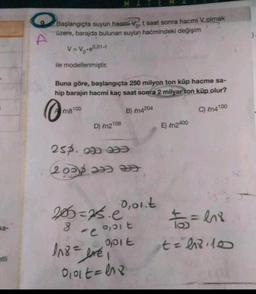 Başlangıçta suyun hacmi V₀, t saat sonra hacmi V olmak
A
üzere, barajda bulunan suyun hacmindeki değişim
V = V₀·e^0,01·t
ile modellenmiştir.
Buna göre, başlangıçta 250 milyon ton küp hacme sa-
hip barajın hacmi kaç saat sonra 2 milyar ton küp olur?
A) ℓn8^100 B) ℓn4^204 C) ℓn4^100
D) ℓn2^108 E) ℓn2^400
250.000 000
= 25.e^0,01.t
8 = e^0,01t
ln8 =
0,01t = ln8
t/100 = ln8
t = ln8.100